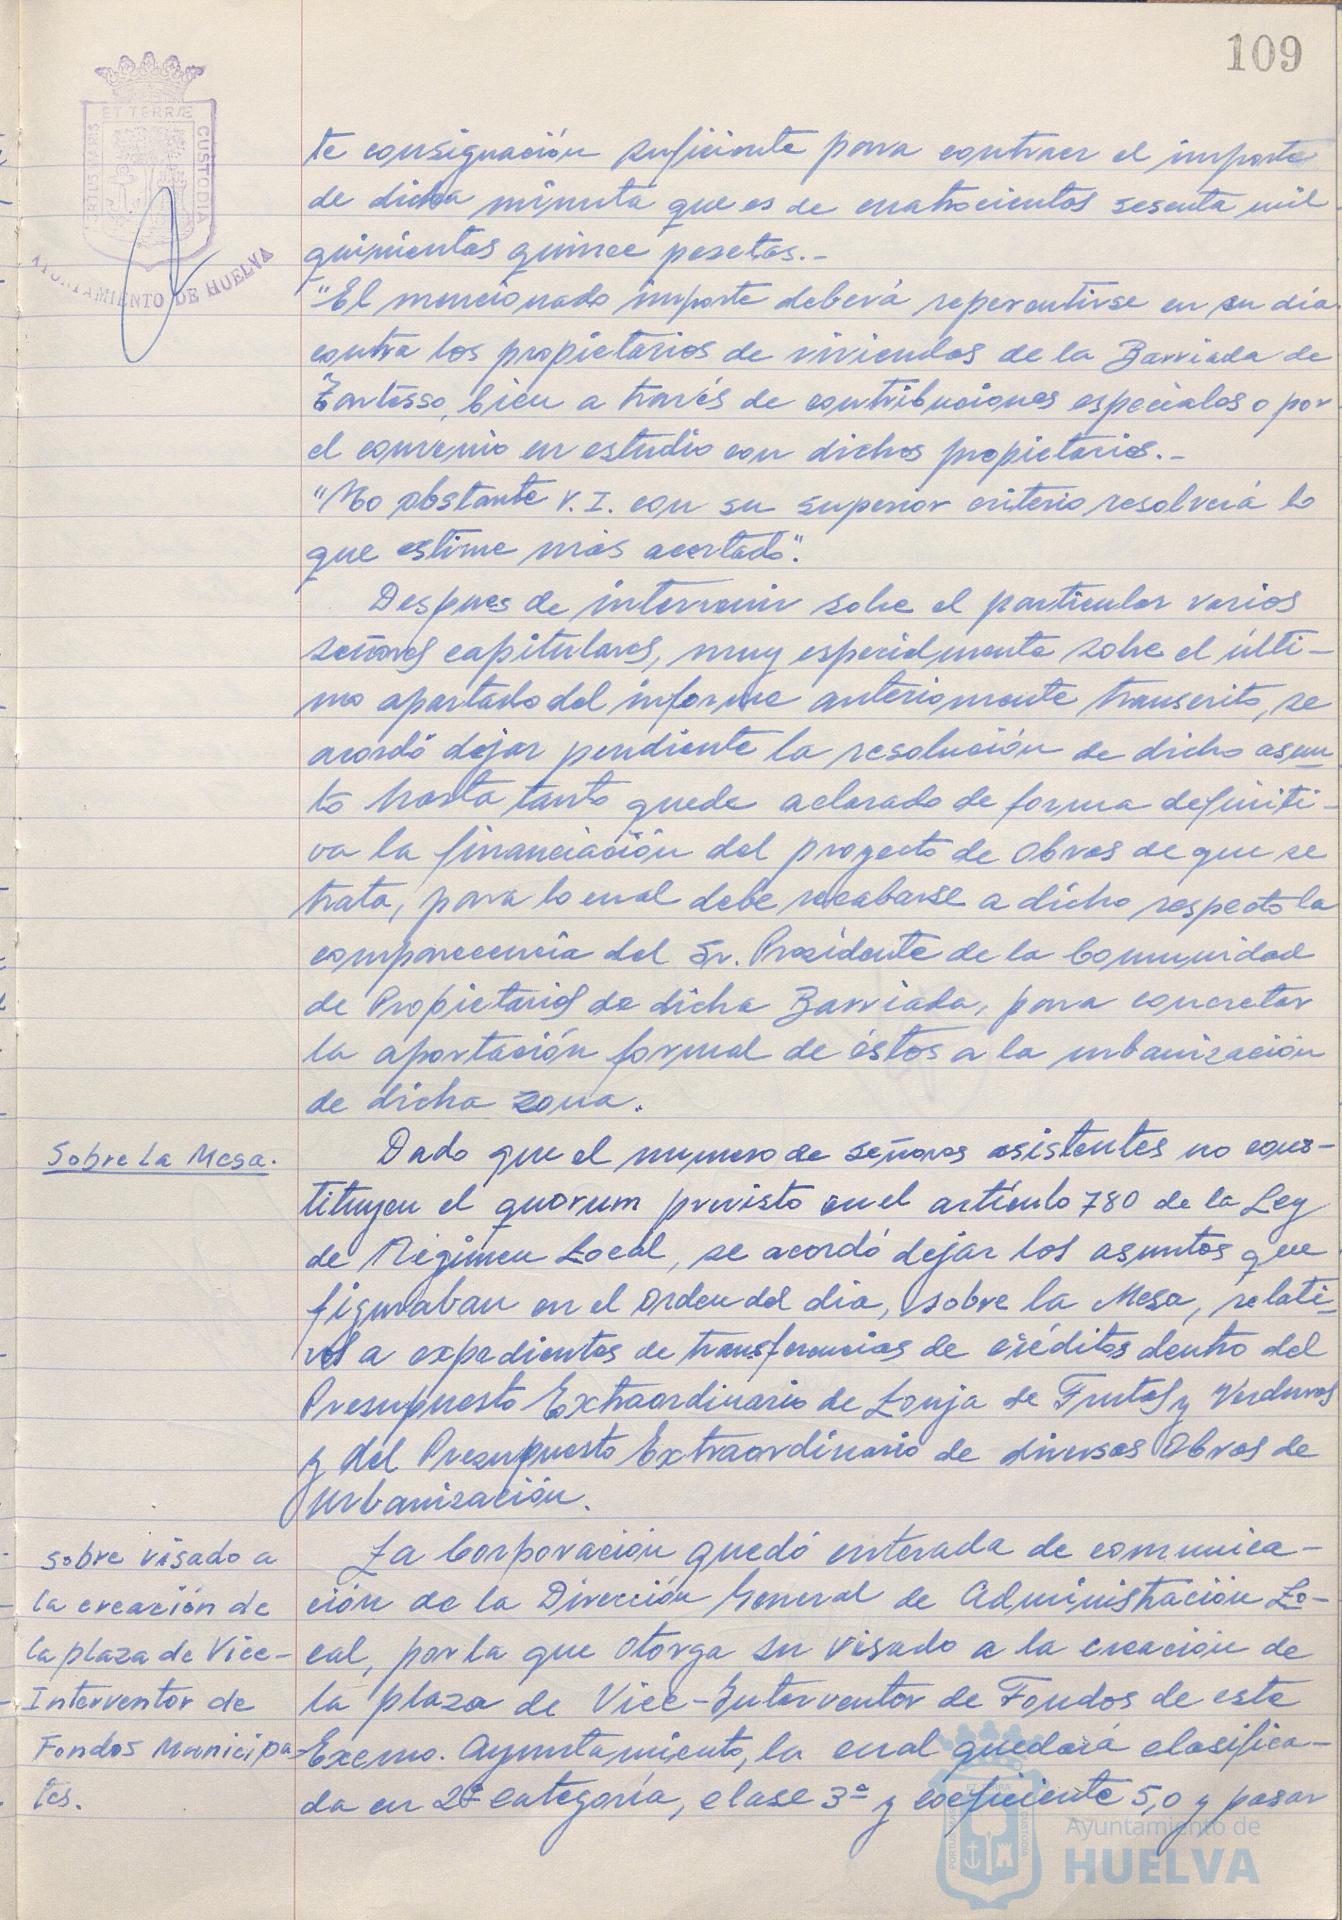 109
ET TERRÆ
PORTUS MARIS
CUSTODIA
AYUNTAMIENTO DE HUELVA
te consignación suficiente para contraer el importe
de dicha minuta que es de cuatrocientas sesenta mil
quinientas quince pesetas.-
"El mencionado importe deberá repercutirse en su día
contra los propietarios de viviendas de la Barriada de
Tartesso, bien a través de contribuciones especiales o por
el convenio en estudio con dichos propietarios.-
"No obstante V.I. con su superior criterio resolverá lo
que estime más acertado".
Despues de intervenir sobre el particular varios
señores capitulares, muy especialmente sobre el últi-
mo apartado del informe anteriormente transcrito, se
acordó dejar pendiente la resolución de dicho asun
to hasta tanto quede aclarado de forma definiti-
va la financiación del proyecto de Obras de que se
trata, para lo cual debe recabarse a dicho respecto la
comparecencia del Sr. Presidente de la Comunidad
de Propietarios de dicha Barriada, para concretar
la aportación formal de éstos a la urbanización
de dicha zona.
Sobre la Mesa.
Dado que el numero de señores asistentes no cons-
tituyen el quorum previsto en el artículo 780 de la Ley
de Régimen Local, se acordó dejar los asuntos que
figuraban en el Orden del dia, sobre la Mesa, relati-
vos a expedientes de transferencias de créditos dentro del
Presupuesto Extraordinario de Lonja de Frutas y Verduras
y del Presupuesto Extraordinario de diversas Obras de
Urbanización.
sobre visado a
la creación de
la plaza de Vice-
Interventor de
Fondos Municipa-
les.
La Corporación quedó enterada de comunica-
ción de la Dirección General de Administración Lo-
cal, por la que otorga su visado a la creación de
la plaza de Vice-Interventor de Fondos de este
Excmo. Ayuntamiento, la cual quedará clasifica-
da en 2ª categoría, clase 3ª y coeficiente 5,0 y pasar
Ayuntamiento de
HUELVA